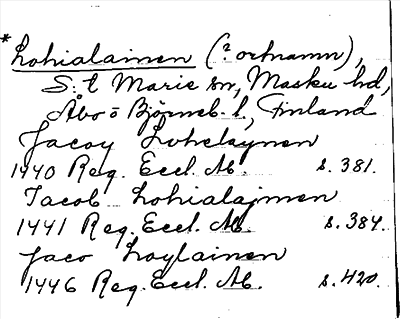 * Lohialainen (? ortnamn),
S:t Marie sn, Masku hd,
Åbo o Björneb. l., Finland
Jacoy Lohelaynen
1440 Reg. Eccl. Ab. s. 381.
Jacob Lohialajnen
1441 Reg. Eccl. Ab. s. 384.
Jaco Loylainen
1446 Reg. Eccl. Ab. s. 420.